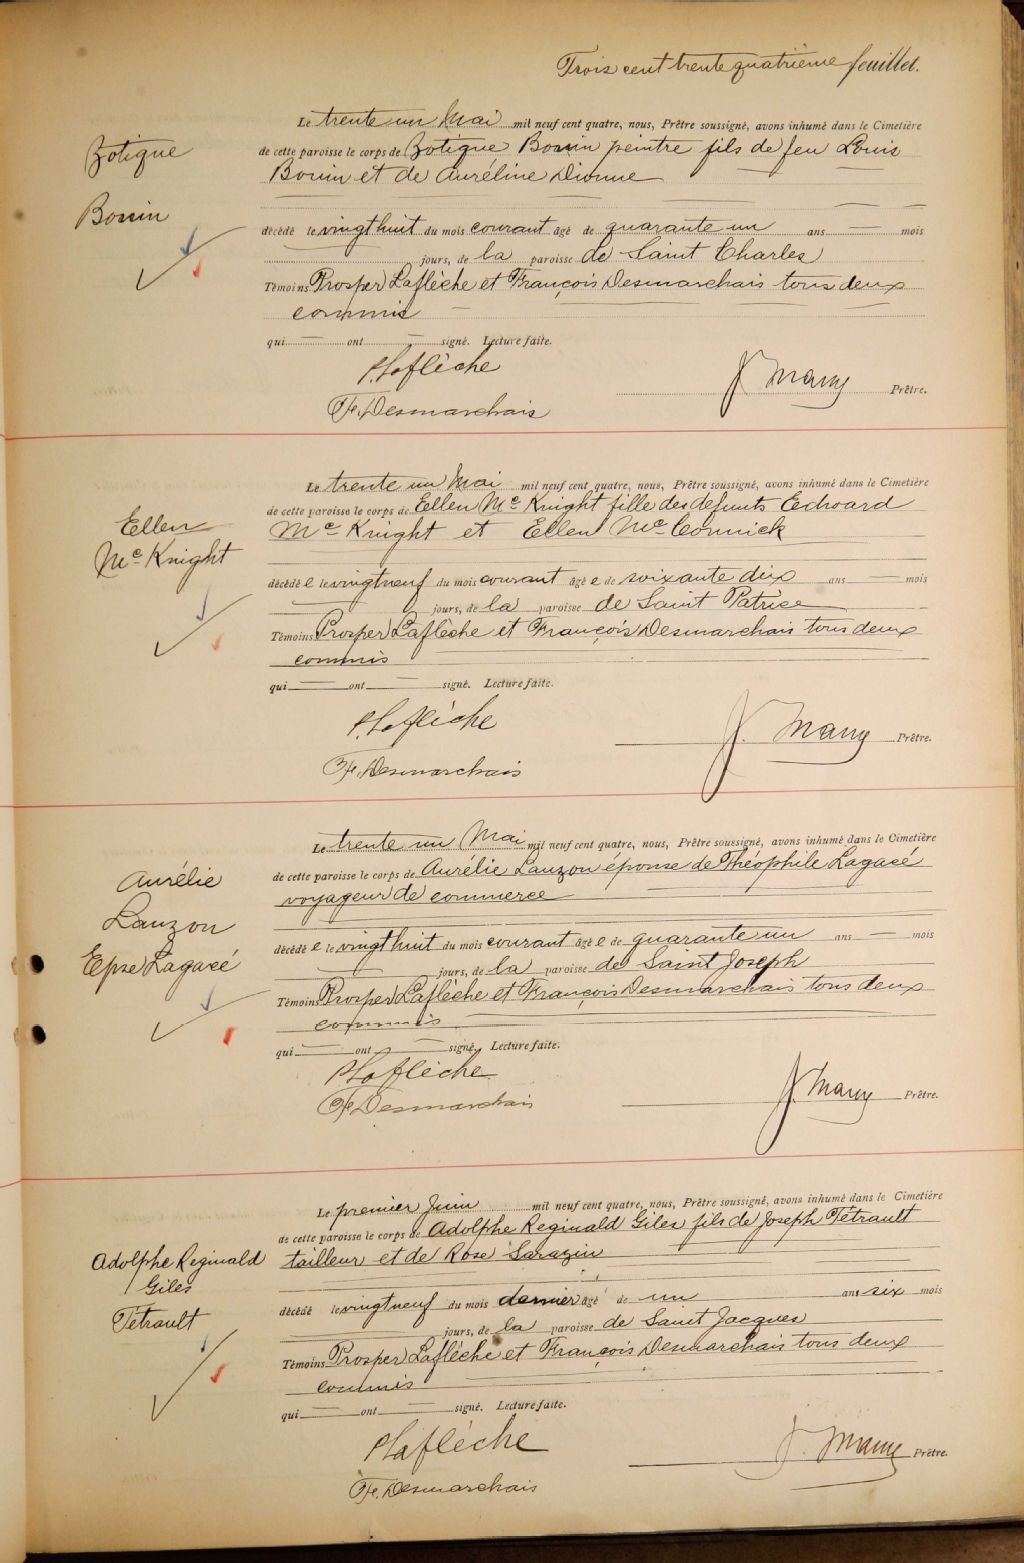 Trois cent trente quatrième feuillet.
Zotique
Bonin
Le trente un Mai mil neuf cent quatre, nous, Prêtre soussigné, avons inhumé dans le Cimetière
de cette paroisse le corps de Zotique Bonin peintre fils de feu Louis
Bonin et de Auréline Dionne
décédé le vingthuit du mois courant âgé de quarante un ans mois
jours, de la paroisse de Saint Charles
Témoins Prosper Laflèche et François Desmarchais tous deux
commis
qui ont signé. Lecture faite.
P. Laflèche
F. Desmarchais
Prêtre.
Ellen
Mc Knight
Le trente un Mai mil neuf cent quatre, nous, Prêtre soussigné, avons inhumé dans le Cimetière
de cette paroisse le corps de Ellen Mc Knight fille des defunts Edward
Mc Knight et Ellen Mc Cormick
décédé e le vingtneuf du mois courant âgé e de soixante dix ans mois
jours, de la paroisse de Saint Patrice
Témoins Prosper Laflèche et François Desmarchais tous deux
commis
qui ont signé. Lecture faite.
P. Laflèche
F. Desmarchais
Prêtre.
Aurélie
Lauzon
Epse Lagacé
Le trente un Mai mil neuf cent quatre, nous, Prêtre soussigné, avons inhumé dans le Cimetière
de cette paroisse le corps de Aurélie Lauzon épouse de Théophile Lagacé
voyageur de commerce
décédé e le vingthuit du mois courant âgé e de quarante un ans mois
jours, de la paroisse de Saint Joseph
Témoins Prosper Laflèche et François Desmarchais tous deux
commis
qui ont signé. Lecture faite.
P Laflèche
F. Desmarchais
Prêtre.
Adolphe Reginald
Giles
Tétrault
Le premier Juin mil neuf cent quatre, nous, Prêtre soussigné, avons inhumé dans le Cimetière
de cette paroisse le corps de Adolphe Reginald Giles fils de Joseph Tétrault
tailleur et de Rose Sarazin
décédé le vingtneuf du mois dernier âgé de un ans six mois
jours, de la paroisse de Saint Jacques
Témoins Prosper Laflèche et François Desmarchais tous deux
commis
qui ont signé. Lecture faite.
P Laflèche
F. Desmarchais
Prêtre.